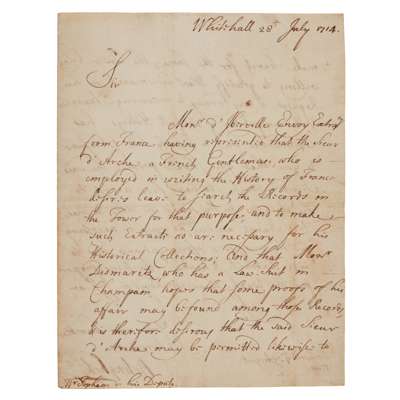 Whitehall 28th July 1714.
Sir
Monsr d'Iberville Envoy Extrry
from France having represented that the Sieur
d'Arche a French Gentleman who is
employed in writing the History of France
desires leave to search the Records in
the Tower for that purpose, and to make
such Extracts as are necessary for his
Historical Collections; And that Monsr
Desmaretz who has a Law Suit in
Champain hopes that some proofs of his
affair may be found among those Records,
& is therefore desirous that the said Sieur
d'Arche may be permitted likewise to
his Deputy